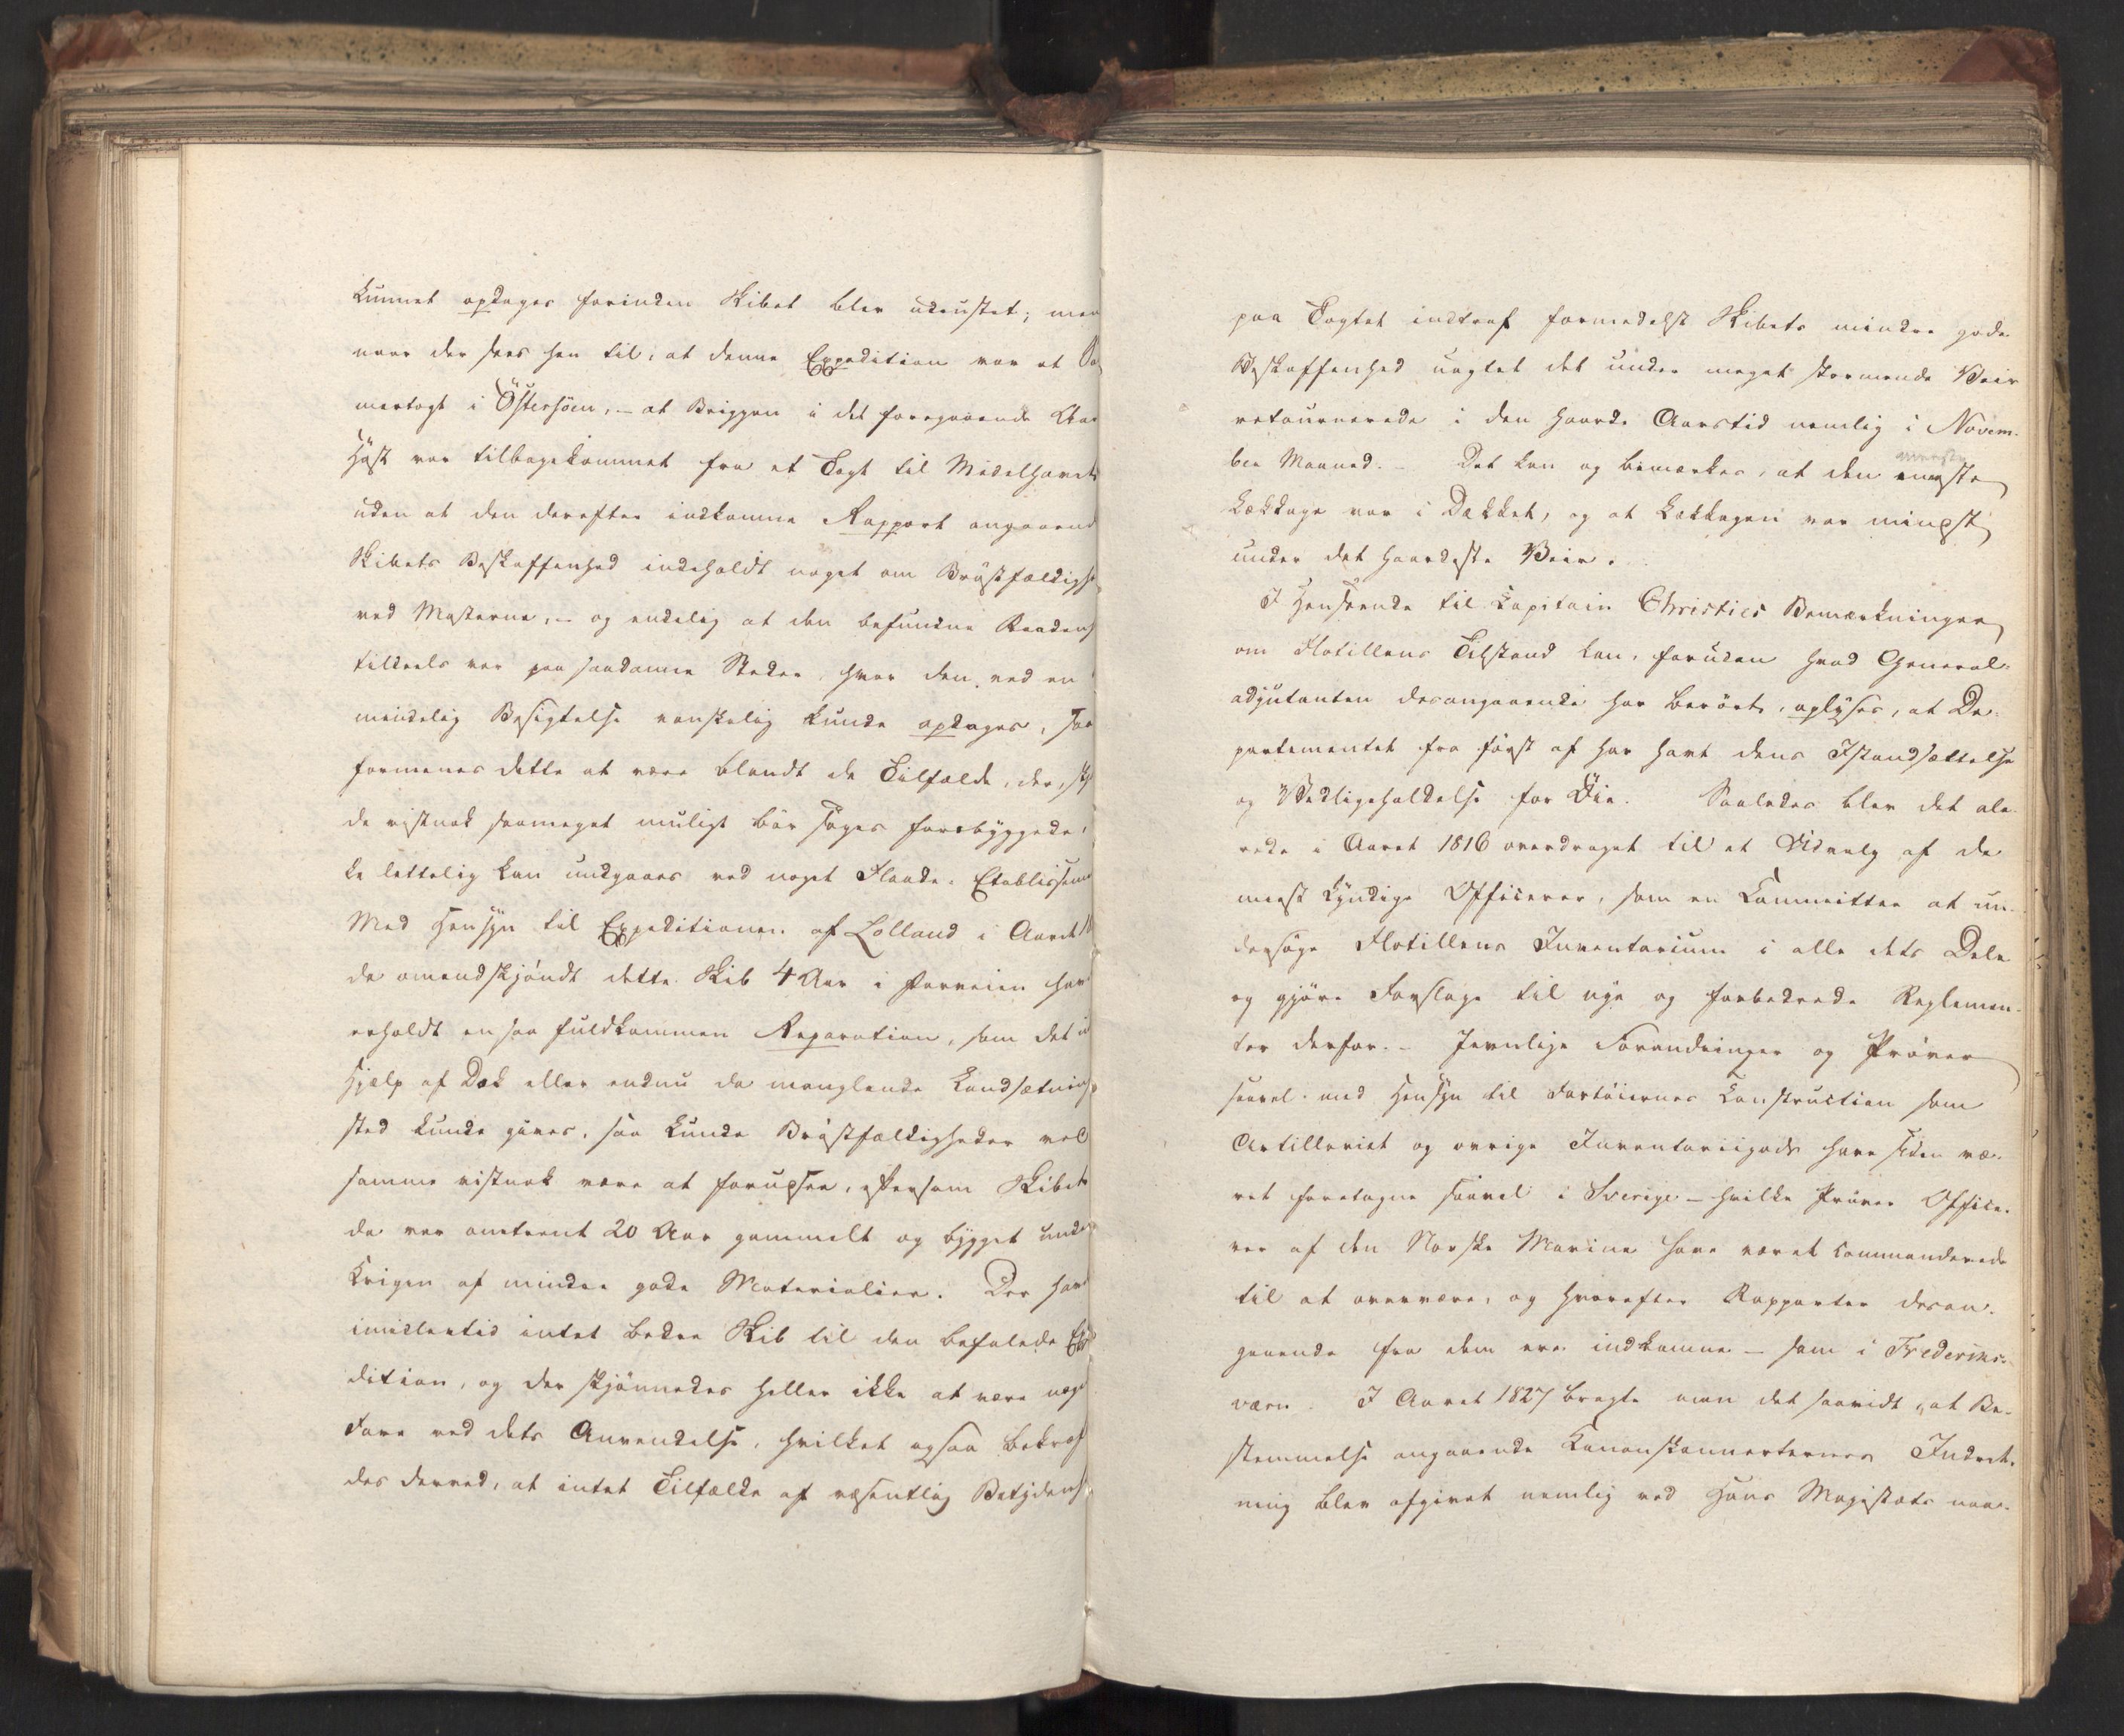 kunnet opdages forinden Skibet blev udrustet; men
naar der sees hen til, at denne Expedition var et So
mertogt i Östersöen, – at Briggen i det foregaaende Aar
Höst var tilbagekommet fra et Togt til Middelhavet
uden at den derefter indkomne Rapport angaaend
Skibets Beskaffenhed indeholdt noget om Bröstfældigh
ved Masterne, – og endelig at den befundne Raadenh
tildeels var paa saadanne Steder, hvor den ved en
mindelig Besigtelse vanskelig kunde opdages, saa
formenes dette at være blandt de Tilfælde, der, sk
de vistnok saameget muligt bör söges forebyggede,
ke lettelig kan undgaaes ved noget Flaade-Etablissem
Med Hensyn til Expeditionen af Lolland i Aaret 18
da omendskjöndt dette Skib 4 Aar i forveien hav
erholdt en saa fuldkommen Reparation, som det u
Hjælp af Dok eller endnu da manglende Landsætnings
sted kunde gives, saa kunde Bröstfældigheder ved
samme vistnok være at forudsee, eftersom Skibet
da var omtrent 20 Aar gammelt og bygget unde
Krigen af mindre gode Materialier. Der hav
imidlertid intet bedre Skib til den befalede Exp
dition, og der skjönnedes heller ikke at være noge
Fare ved dets Anvendelse, hvilket ogsaa bekræf
des derved, at intet Tilfælde af væsentlig Betydenh
paa Togtet indtraf formedelst Skibets mindre gode
Beskaffenhed uagtet det under meget stormende Veir
retournerede i den haarde Aarstid nemlig i Novem-
ber Maaned. – Det kan og bemærkes, at den meeste
Lækkage var i Dækket, og at Lækkagen var mindst
under det haardeste Veir.
I Henseende til Capitain Christies Bemærkninger
om Flotillens Tilstand kan, foruden hvad General-
adjutanten desangaaende har berört, oplyses, at De-
partementet fra först af har havt dens Istandsættelse
og Vedligeholdelse for Öie. Saaledes blev det alle-
rede i Aaret 1816 overdraget til et Udvalg af de
meest kyndige Officerer, som en Committee at un-
dersöge Flotillens Inventarium i alle dets Dele
og gjöre Forslage til nye og forbedrede Reglemen-
ter derfor. – Jevnlige Forandringer og Pröver
saavel med Hensyn til Fartöiernes Construction som
Artilleriet og övrige Inventariigods have siden væ-
ret foretagne saavel i Sverige – hvilke Pröver Office-
rer af den Norske Marine have været commanderede
til at overvære, og hvorefter Rapporter desan-
gaaende fra dem ere indkomne – som i Frederiks-
værn. I Aaret 1827 bragte man det saavidt, at Be-
stemmelse angaaende Kanonskonnerternes Indret-
ning blev afgivet nemlig ved Hans Majestæts naa-